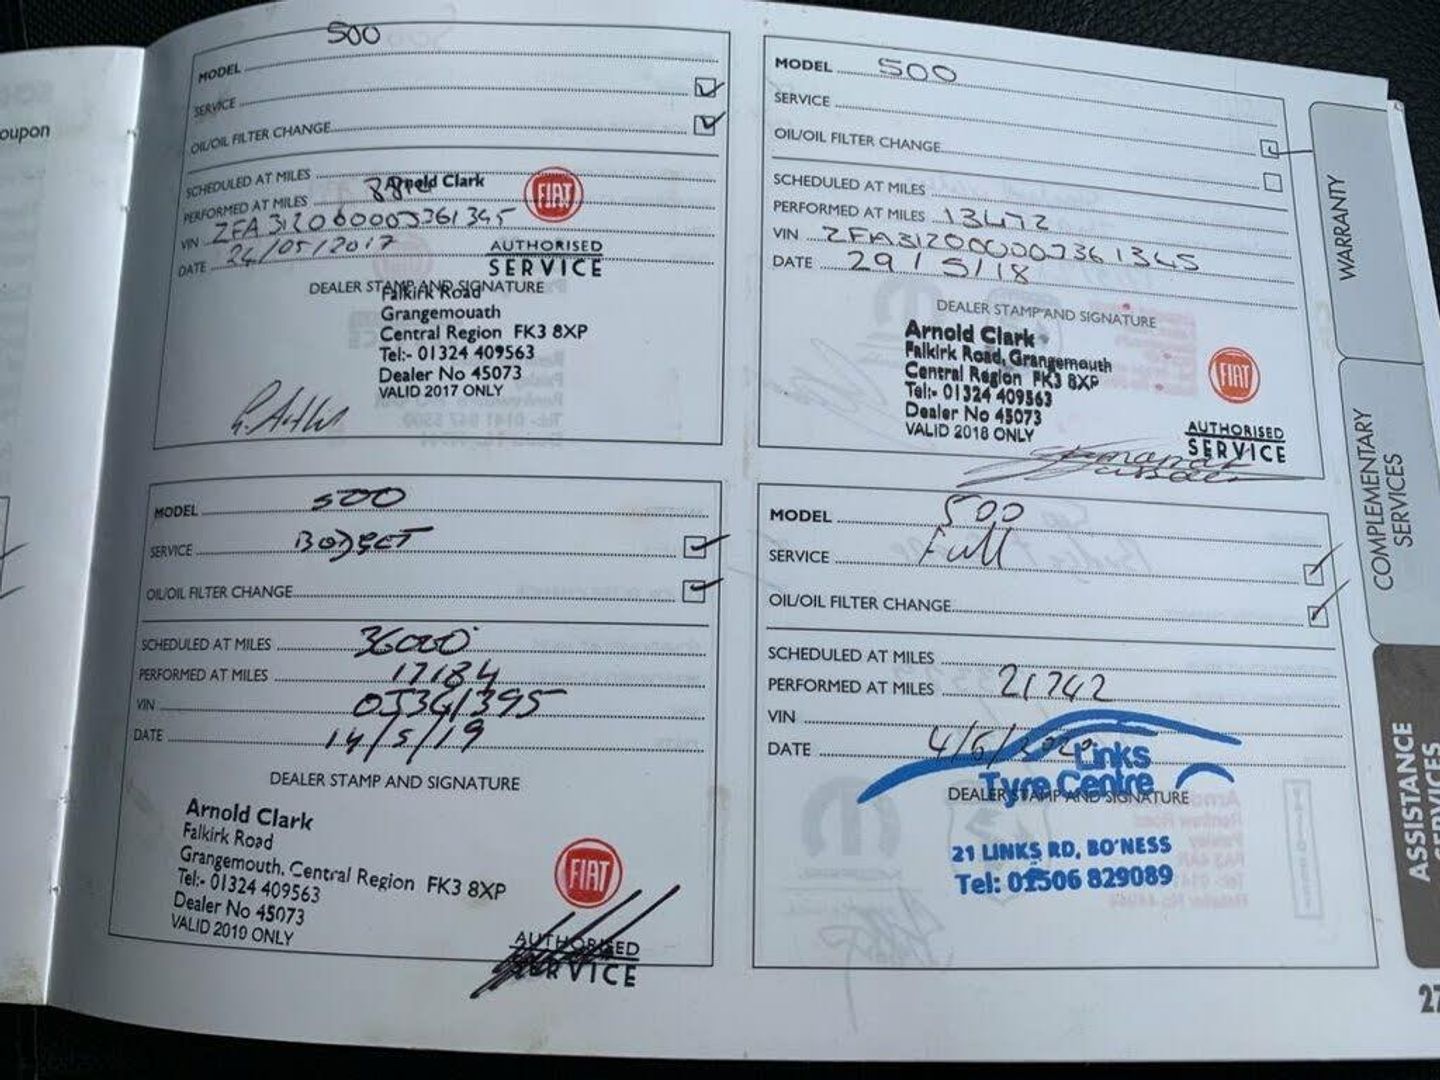 oupon
500
MODEL
SERVICE
OIL/OIL FILTER CHANGE
SCHEDULED AT MILES
Arnold Clark
FIAT
PERFORMED AT MILES
VIN ZFA3120000J361345
DATE 24/05/2017
AUTHORISED
SERVICE
DEALER STAMP AND SIGNATURE
Falkirk Road
Grangemouath
Central Region FK3 8XP
Tel:- 01324 409563
Dealer No 45073
VALID 2017 ONLY
MODEL 500
SERVICE
OIL/OIL FILTER CHANGE
SCHEDULED AT MILES
PERFORMED AT MILES 13472
VIN ZFA3120000J361345
DATE 29/5/18
DEALER STAMP AND SIGNATURE
Arnold Clark
Falkirk Road, Grangemouth
Central Region FK3 8XP
Tel:- 01324 409563
Dealer No 45073
VALID 2018 ONLY
FIAT
AUTHORISED
SERVICE
MODEL 500
SERVICE BUDGET
OIL/OIL FILTER CHANGE
SCHEDULED AT MILES 36000
PERFORMED AT MILES 17184
VIN 0J361395
DATE 14/5/19
DEALER STAMP AND SIGNATURE
Arnold Clark
Falkirk Road
Grangemouth, Central Region FK3 8XP
Tel:- 01324 409563
Dealer No 45073
VALID 2019 ONLY
FIAT
AUTHORISED
SERVICE
MODEL 500
SERVICE Full
OIL/OIL FILTER CHANGE
SCHEDULED AT MILES
PERFORMED AT MILES 21742
VIN
DATE 4/6/2020
Links
Tyre Centre
DEALER STAMP AND SIGNATURE
21 LINKS RD, BO'NESS
Tel: 01506 829089
WARRANTY
COMPLEMENTARY
SERVICES
ASSISTANCE
SERVICES
27